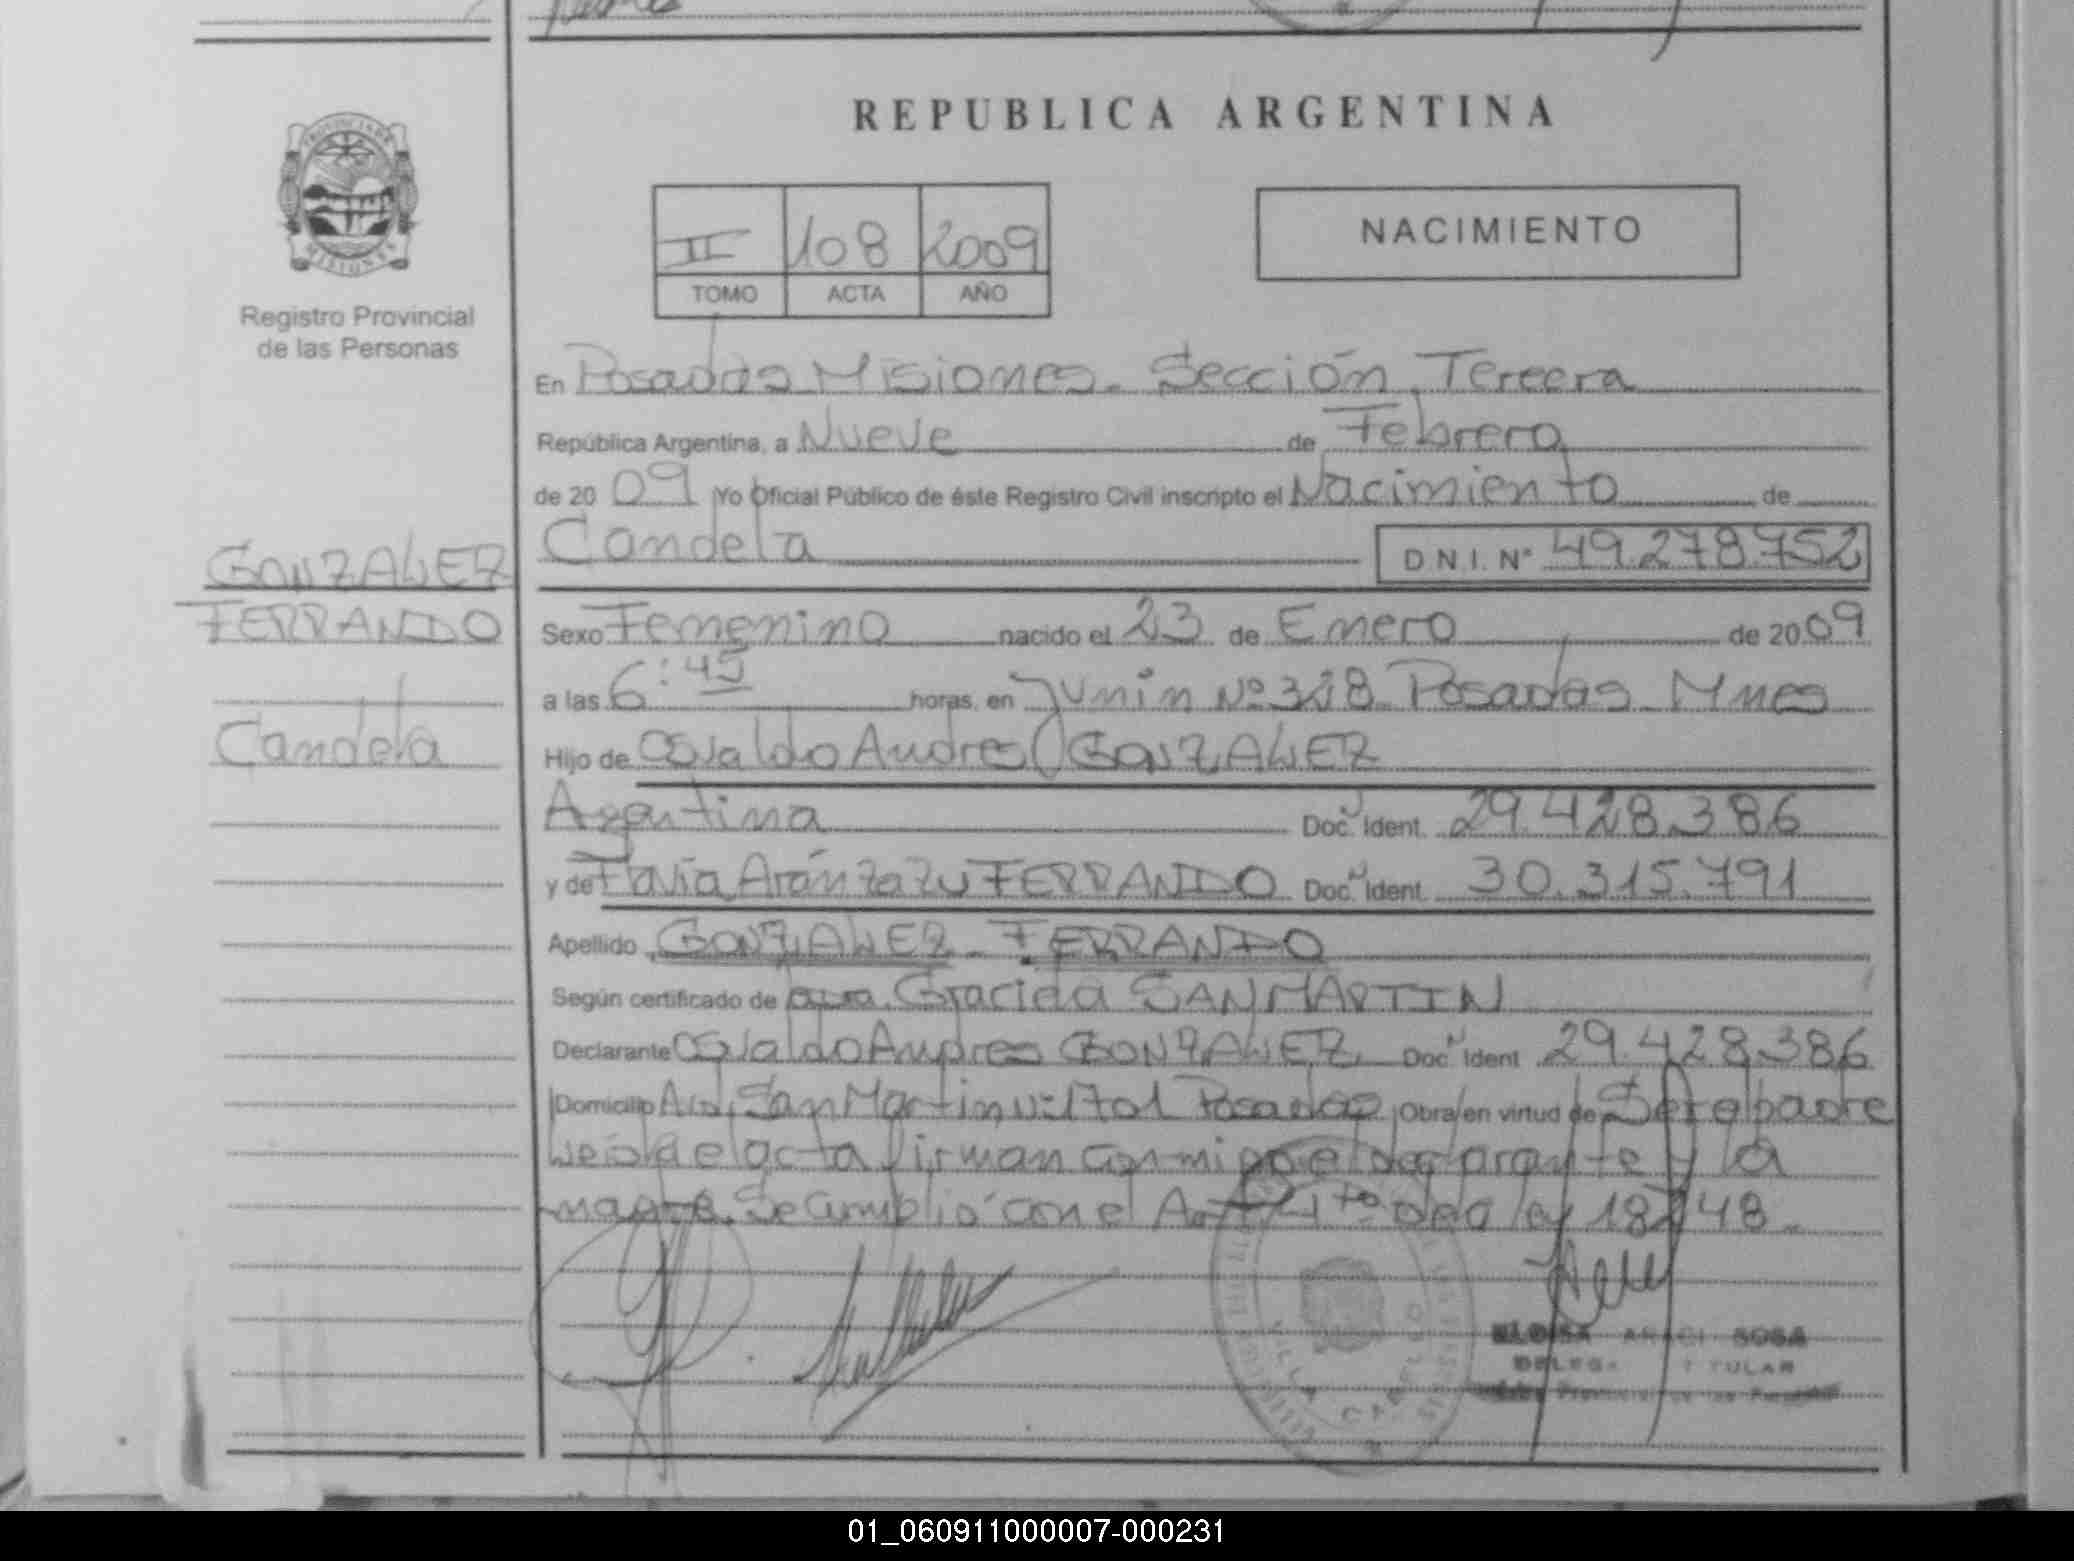 REPUBLICA ARGENTINA
PROVINCIA DE
MISIONES
Registro Provincial
de las Personas
II 108 2009
TOMO ACTA AÑO
NACIMIENTO
En Posadas Misiones. Sección Tercera
República Argentina, a Nueve de Febrero
de 20 09 Yo Oficial Público de éste Registro Civil inscripto el Nacimiento de
Candela D.N.I. Nº 49.278.752
GONZALEZ
FERRANDO
Candela
Sexo Femenino nacido el 23 de Enero de 20 09
a las 6:45 horas, en Junin Nº 328 Posadas Mnes
Hijo de Osvaldo Andres GONZALEZ
Argentina Doc. Ident. 29.428.386
y de Flavia Aránzazu FERRANDO Doc. Ident. 30.315.791
Apellido GONZALEZ - FERRANDO
Según certificado de Graciela SANMARTIN
Declarante Osvaldo Andres GONZALEZ Doc. Ident 29.428.386
Domicilio Avd. San Martin Nº 1701 Posadas Obra en virtud de Ser el padre
Leida el acta firman conmigo el declarante y la
madre. Se cumplió con el Art. 4to de la ley 18248.
VILLA CABELLO
ELOISA ARACI SOSA
DELEGA TITULAR
01_060911000007-000231